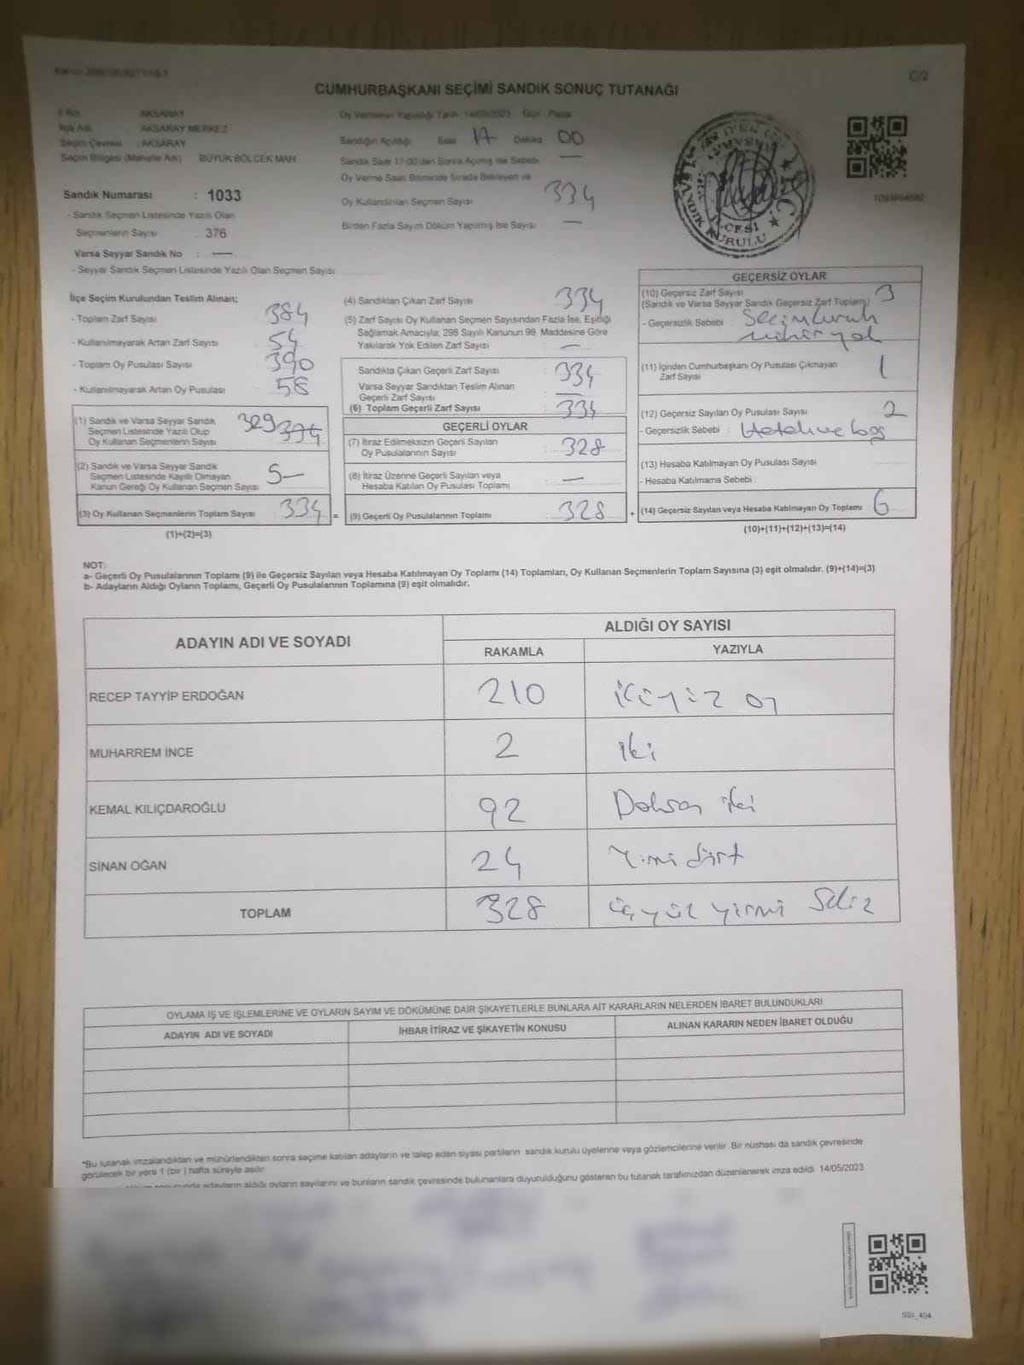 C/2
CUMHURBAŞKANI SEÇİMİ SANDIK SONUÇ TUTANAĞI
İl Adı : AKSARAY
İlçe Adı : AKSARAY MERKEZ
Seçim Çevresi : AKSARAY
Seçim Bölgesi (Mahalle Adı) : BÜYÜK BÖLCEK MAH
Sandık Numarası : 1033
- Sandık Seçmen Listesinde Yazılı Olan
Seçmenlerin Sayısı : 376
Varsa Seyyar Sandık No : —
- Seyyar Sandık Seçmen Listesinde Yazılı Olan Seçmen Sayısı
Oy Vermenin Yapıldığı Tarih : 14/05/2023 Gün : Pazar
Sandığın Açıldığı Saat 17 Dakika 00
Sandık Saat 17:00'den Sonra Açılmış İse Sebebi —
Oy Verme Saati Bitiminde Sırada Bekleyen ve
Oy Kullandırılan Seçmen Sayısı 334
Birden Fazla Sayım Döküm Yapılmış İse Sayısı —
İlçe Seçim Kurulundan Teslim Alınan;
- Toplam Zarf Sayısı 384
- Kullanılmayarak Artan Zarf Sayısı 54
- Toplam Oy Pusulası Sayısı 390
- Kullanılmayarak Artan Oy Pusulası 58
(1) Sandık ve Varsa Seyyar Sandık
Seçmen Listesinde Yazılı Olup
Oy Kullanan Seçmenlerin Sayısı 329
(2) Sandık ve Varsa Seyyar Sandık
Seçmen Listesinde Kayıtlı Olmayan
Kanun Gereği Oy Kullanan Seçmen Sayısı 5-
(3) Oy Kullanan Seçmenlerin Toplam Sayısı 334 =
(1)+(2)=(3)
(4) Sandıktan Çıkan Zarf Sayısı 334
(5) Zarf Sayısı Oy Kullanan Seçmen Sayısından Fazla İse, Eşitliği
Sağlamak Amacıyla; 298 Sayılı Kanunun 98. Maddesine Göre
Yakılarak Yok Edilen Zarf Sayısı —
Sandıkta Çıkan Geçerli Zarf Sayısı 334
Varsa Seyyar Sandıktan Teslim Alınan
Geçerli Zarf Sayısı —
(6) Toplam Geçerli Zarf Sayısı 334
GEÇERLİ OYLAR
(7) İtiraz Edilmeksizin Geçerli Sayılan
Oy Pusulalarının Sayısı : 328
(8) İtiraz Üzerine Geçerli Sayılan veya
Hesaba Katılan Oy Pusulası Toplamı : —
(9) Geçerli Oy Pusulalarının Toplamı : 328 +
GEÇERSİZ OYLAR
(10) Geçersiz Zarf Sayısı 3
(Sandık ve Varsa Seyyar Sandık Geçersiz Zarf Toplamı)
- Geçersizlik Sebebi
(11) İçinden Cumhurbaşkanı Oy Pusulası Çıkmayan
Zarf Sayısı 1
(12) Geçersiz Sayılan Oy Pusulası Sayısı 2
- Geçersizlik Sebebi :
(13) Hesaba Katılmayan Oy Pusulası Sayısı
- Hesaba Katılmama Sebebi :
(14) Geçersiz Sayılan veya Hesaba Katılmayan Oy Toplamı 6
(10)+(11)+(12)+(13)=(14)
NOT:
a- Geçerli Oy Pusulalarının Toplamı (9) ile Geçersiz Sayılan veya Hesaba Katılmayan Oy Toplamı (14) Toplamları, Oy Kullanan Seçmenlerin Toplam Sayısına (3) eşit olmalıdır. (9)+(14)=(3)
b- Adayların Aldığı Oyların Toplamı, Geçerli Oy Pusulalarının Toplamına (9) eşit olmalıdır.
ADAYIN ADI VE SOYADI
ALDIĞI OY SAYISI
RAKAMLA YAZIYLA
RECEP TAYYİP ERDOĞAN 210 ikiyüz on
MUHARREM İNCE 2 iki
KEMAL KILIÇDAROĞLU 92 Doksan iki
SİNAN OĞAN 24 Yirmi dört
TOPLAM 328 üçyüz yirmi Sekiz
OYLAMA İŞ VE İŞLEMLERİNE VE OYLARIN SAYIM VE DÖKÜMÜNE DAİR ŞİKAYETLERLE BUNLARA AİT KARARLARIN NELERDEN İBARET BULUNDUKLARI
ADAYIN ADI VE SOYADI İHBAR İTİRAZ VE ŞİKAYETİN KONUSU ALINAN KARARIN NEDEN İBARET OLDUĞU
*Bu tutanak imzalandıktan ve mühürlendikten sonra seçime katılan adayların ve talep eden siyasi partilerin sandık kurulu üyelerine veya gözlemcilerine verilir. Bir nüshası da sandık çevresinde
görülecek bir yere 1 (bir ) hafta süreyle asılır.
adayların aldığı oyların sayılarını ve bunların sandık çevresinde bulunanlara duyurulduğunu gösteren bu tutanak tarafımızdan düzenlenerek imza edildi. 14/05/2023